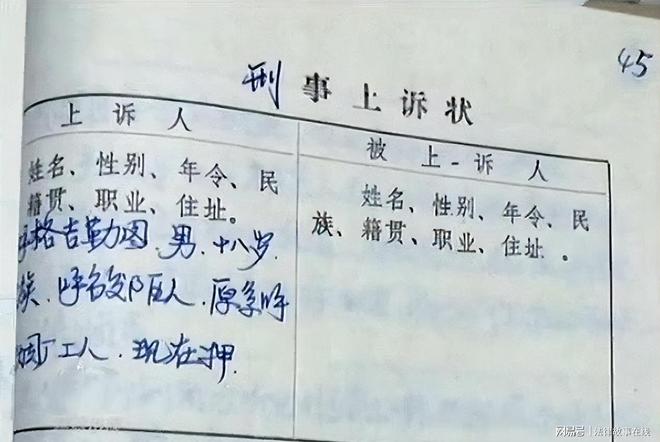 45
刑事上诉状
上诉人
姓名、性别、年令、民
籍贯、职业、住址。
格吉勒图．男．十八岁．
族．呼市郊区人．原系呼
厂工人．现在押．
被上诉人
姓名、性别、年令、民
族、籍贯、职业、住址。
网易号 | 法律故事在线